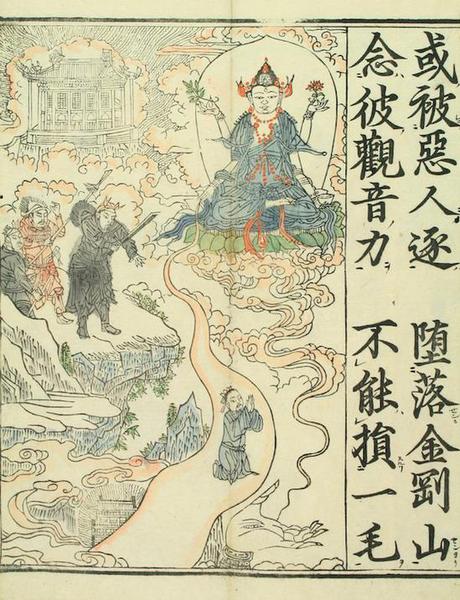 或被惡人逐　堕落金剛山
念彼觀音力　不能損一毛